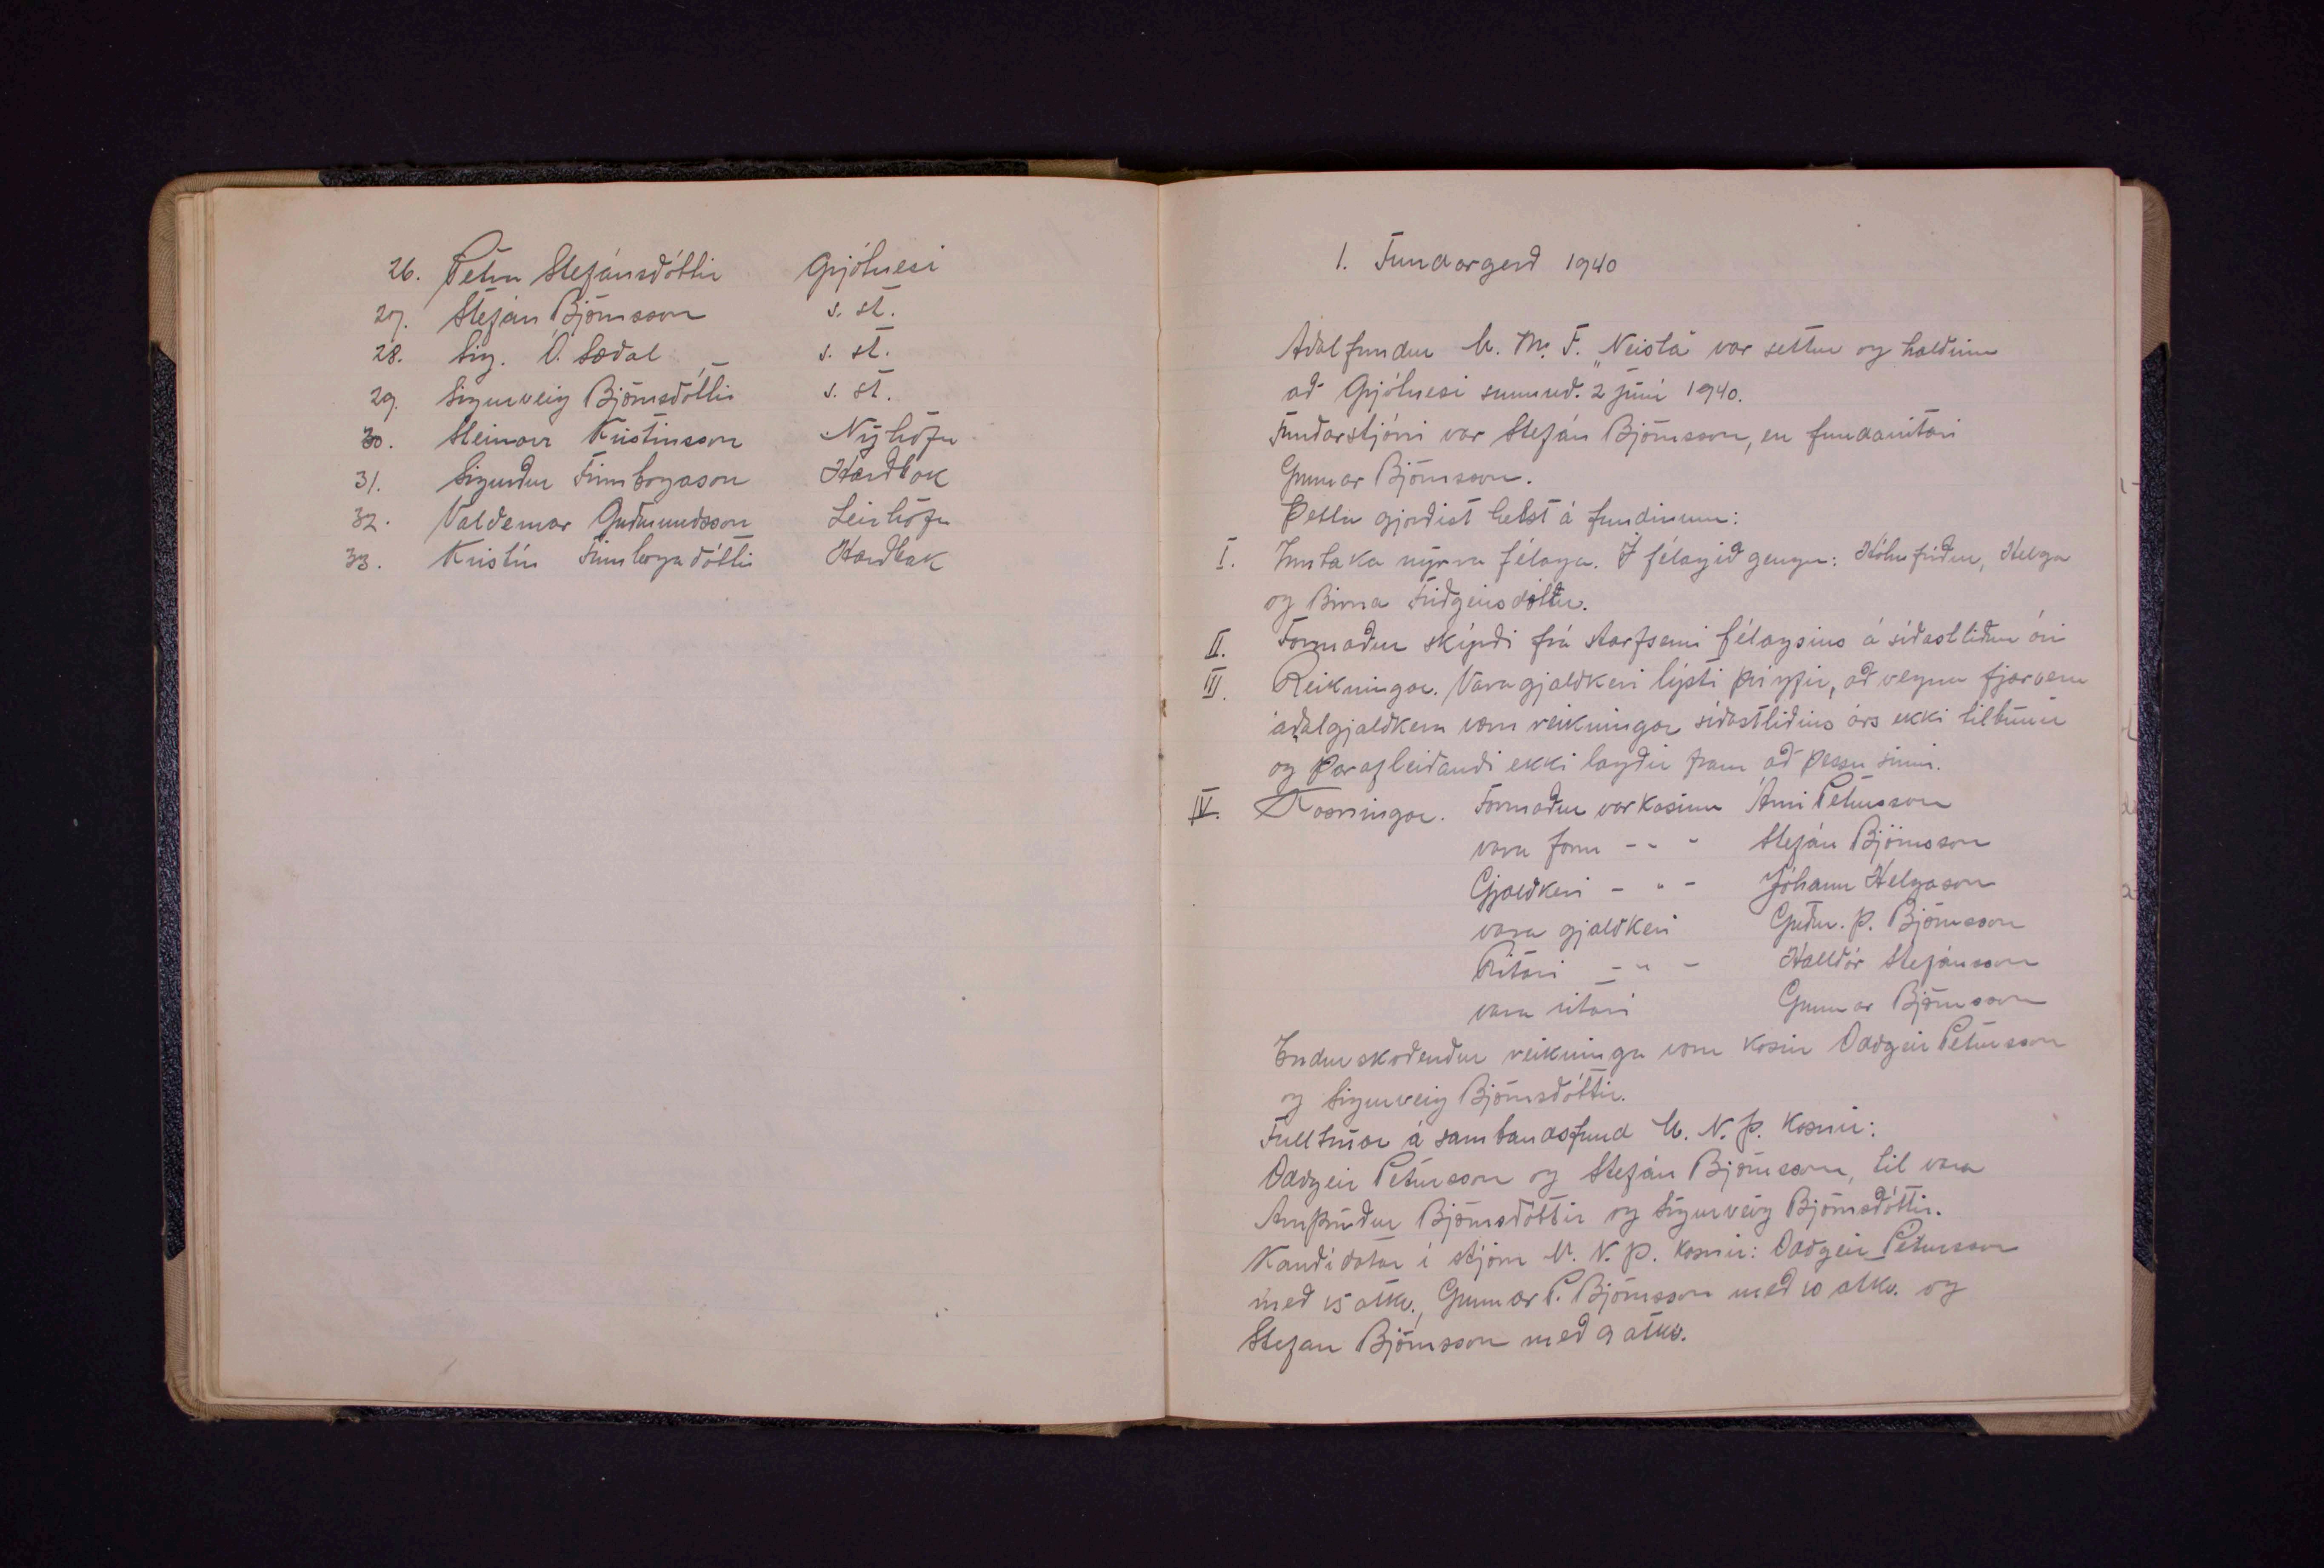 26. Petra Stefánsdóttir Grjótnesi
27. Stefán Björnsson s. st.
28. Sig. Ó. Sædal s. st.
29. Sigurveig Björnsdóttir s. st.
30. Steinarr Kristinsson Nýhöfn
31. Sigurður Finnbogason Harðbak
32. Valdemar Guðmundsson Leirhöfn
33. Kristín Finnbogadóttir Harðbak
1. Fundargerð 1940
Aðalfundur U. M. F. „Neista" var settur og haldinn
að Grjótnesi sunnud. 2 júní 1940.
Fundarstjóri var Stefán Björnsson, en fundarritari
Gunnar Björnsson.
Þetta gjörðist helst á fundinum:
I. Inntaka nýrra félaga. Í félagið gengu: Hólmfríður, Helga
og Birna Friðgeirsdóttur.
II. Formaður skýrði frá starfsemi félagsins á síðastliðnu ári
III. Reikningar. Varagjaldkeri lýsti því yfir, að vegna fjarveru
aðalgjaldkera væru reikningar síðastliðins árs ekki tilbúnir
og þar afleiðandi ekki lagðir fram að þessu sinni.
IV. Kosningar. Formaður var kosinn Árni Pétursson
vara form - " - Stefán Björnsson
Gjaldkeri - " - Jóhann Helgason
vara gjaldkeri Guðm. Þ. Björnsson
Ritari - " - Halldór Stefánsson
vara ritari Gunnar Björnsson
Endurskoðendur reikninga voru kosin Daðgeir Pétursson
og Sigurveig Björnsdóttir.
Fulltrúar á sambandsfund U. N. Þ. kosnir:
Daðgeir Pétursson og Stefán Björnsson, til vara
Arnþrúður Björnsdóttir og Sigurveig Björnsdóttir.
Kandidatar í stjórn U. N. Þ. kosnir: Daðgeir Pétursson
með 15 atkv., Gunnar P. Björnsson með 10 atkv. og
Stefán Björnsson með 9 atkv.